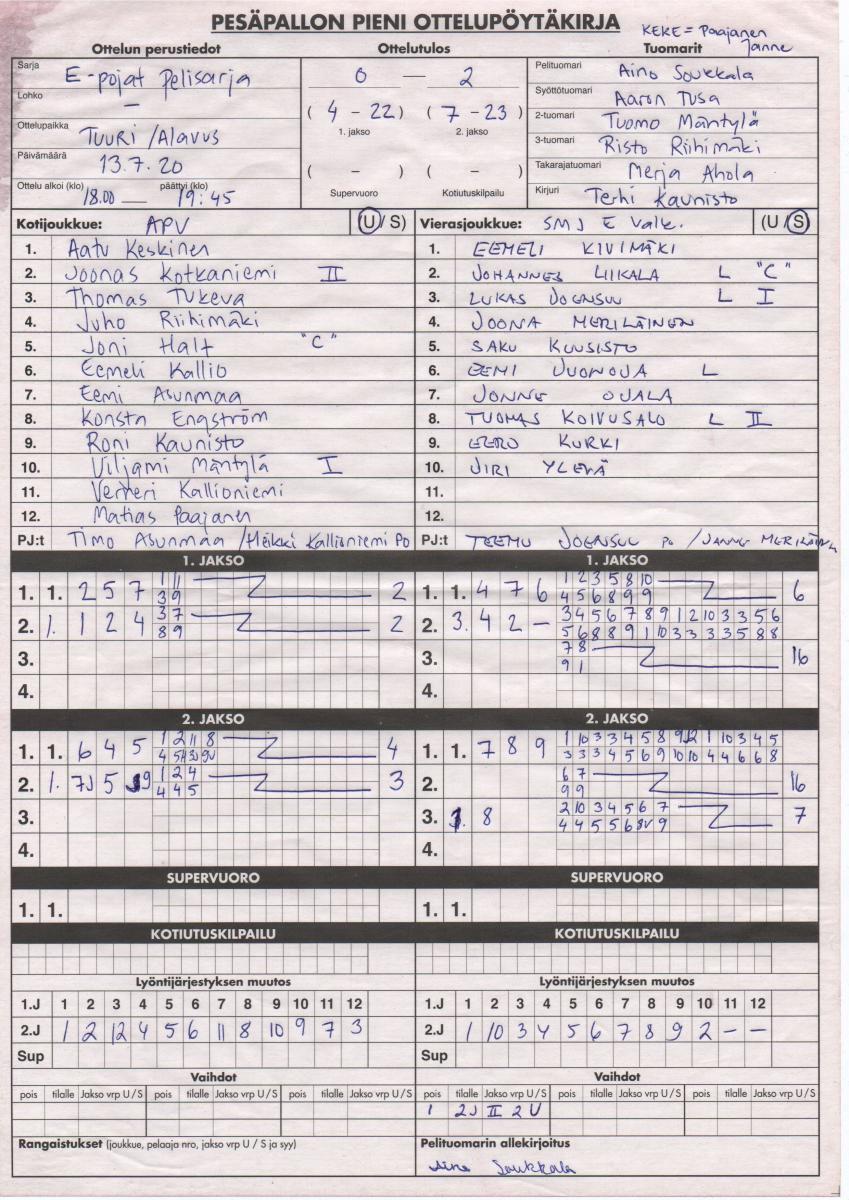 PESÄPALLON PIENI OTTELUPÖYTÄKIRJA
KEKE = Paajanen Janne
Ottelun perustiedot Ottelutulos Tuomarit
Sarja E-pojat Pelisarja
Lohko –
Ottelupaikka TUURI / Alavus
Päivämäärä 13.7.20
Ottelu alkoi (klo) 18.00 päättyi (klo) 19:45
0 — 2
( 4 - 22 ) ( 7 - 23 )
1. jakso 2. jakso
( - ) ( - )
Supervuoro Kotiutuskilpailu
Pelituomari Aino Soukkala
Syöttötuomari Aaron Tusa
2-tuomari Tuomo Mäntylä
3-tuomari Risto Riihimäki
Takarajatuomari Merja Ahola
Kirjuri Terhi Kaunisto
Kotijoukkue: APV (U / S)
1. Aatu Keskinen
2. Joonas Kotkaniemi II
3. Thomas Tukeva
4. Juho Riihimäki
5. Joni Halt "C"
6. Eemeli Kallio
7. Eemi Asunmaa
8. Konsta Engström
9. Roni Kaunisto
10. Viljami Mäntylä I
11. Verneri Kallioniemi
12. Matias Paajanen
PJ:t Timo Asunmaa / Heikki Kallioniemi PO
Vierasjoukkue: SMJ E Valk. (U / S)
1. EEMELI KIVIMÄKI
2. JOHANNES LIIKALA L "C"
3. LUKAS JOENSUU L I
4. JOONA MERILÄINEN
5. SAKU KUUSISTO
6. EEMI JUONOJA L
7. JONNE OJALA
8. TUOMAS KOIVUSALO L II
9. EERO KURKI
10. JIRI YLEVÄ
11.
12.
PJ:t TEEMU JOENSUU PO / JANNE MERILÄINEN
1. JAKSO
1. 1. 2 5 7 1 11 2
3 9
2. 1. 1 2 4 3 7 2
8 9
3.
4.
1. JAKSO
1. 1. 4 7 6 1 2 3 5 8 10 6
4 5 6 8 9 9
2. 3. 4 2 – 3 4 5 6 7 8 9 1 2 10 3 3 5 6
5 6 8 8 9 1 10 3 3 3 3 5 8 8
3. 7 8 16
9 1
4.
2. JAKSO
1. 1. 6 4 5 1 2 11 8 4
2. 1. 7J 5 9 1 2 4 3
4 4 5
3.
4.
2. JAKSO
1. 1. 7 8 9 1 10 3 3 4 5 8 9 12 1 10 3 4 5
3 3 3 4 5 6 9 10 10 4 4 6 6 8
2. 6 7 16
9 9
3. 8 2 10 3 4 5 6 7 7
4 4 5 5 6 8V 9
4.
SUPERVUORO SUPERVUORO
1. 1. 1. 1.
KOTIUTUSKILPAILU KOTIUTUSKILPAILU
Lyöntijärjestyksen muutos
1.J 1 2 3 4 5 6 7 8 9 10 11 12
2.J 1 2 12 4 5 6 11 8 10 9 7 3
Sup
Lyöntijärjestyksen muutos
1.J 1 2 3 4 5 6 7 8 9 10 11 12
2.J 1 10 3 4 5 6 7 8 9 2 – –
Sup
Vaihdot
pois tilalle Jakso vrp U / S pois tilalle Jakso vrp U / S pois tilalle Jakso vrp U / S
Vaihdot
pois tilalle Jakso vrp U / S pois tilalle Jakso vrp U / S pois tilalle Jakso vrp U / S
1 2J II 2 U
Rangaistukset (joukkue, pelaaja nro, jakso vrp U / S ja syy)
Pelituomarin allekirjoitus
Aino Soukkala